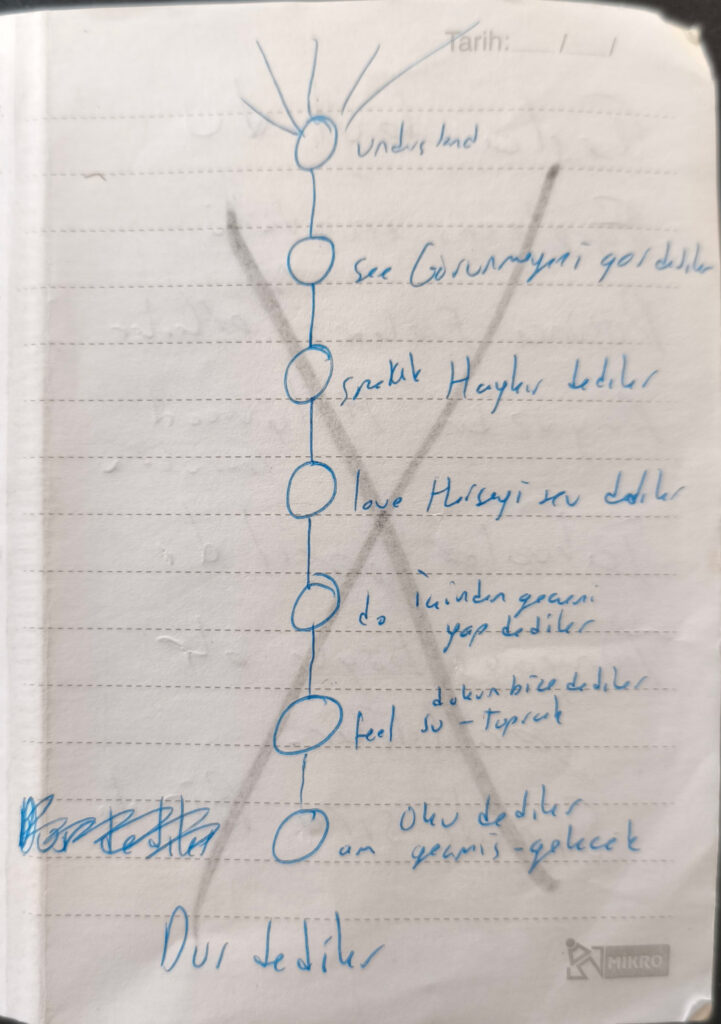 Tarih: / /
understand
see Görünmeyeni gör dediler
speak Haykır dediler
love Herşeyi sev dediler
do İçinden geçeni
yap dediler
dokun bize dediler
feel su - toprak
Oku dediler
am geçmiş - gelecek
Dur dediler
MIKRO